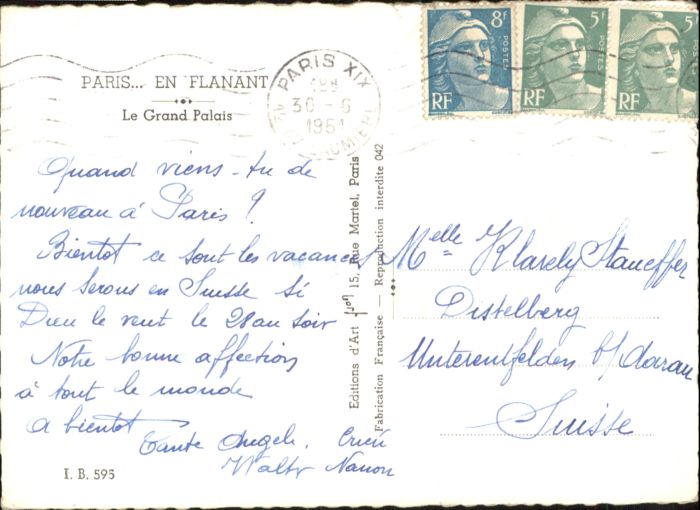 PARIS... EN FLANANT
Le Grand Palais
PARIS XIX
30 - 6
1951
8F
POSTES
RF
5F
POSTES
RF
5
RF
Quand viens-tu de
nouveau à Paris ?
Bientot ce sont les vacances
nous serons en Suisse si
Dieu le veut le 28 au soir
Notre bonne affection
à tout le monde
a bientot
Tante Angele,
Walty Nanon
I. B. 595
Editions d'Art 15, Rue Martel, Paris
Fabrication Française — Reproduction interdite 042
Melle Klarely Stauffer
Distelberg
Unterentfelden b/ Aarau
Suisse